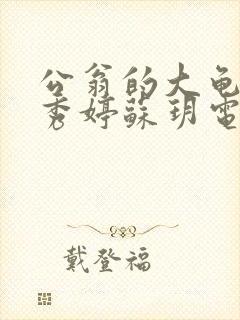 公翁的大龟
秀婷蘇玥電
戴登福